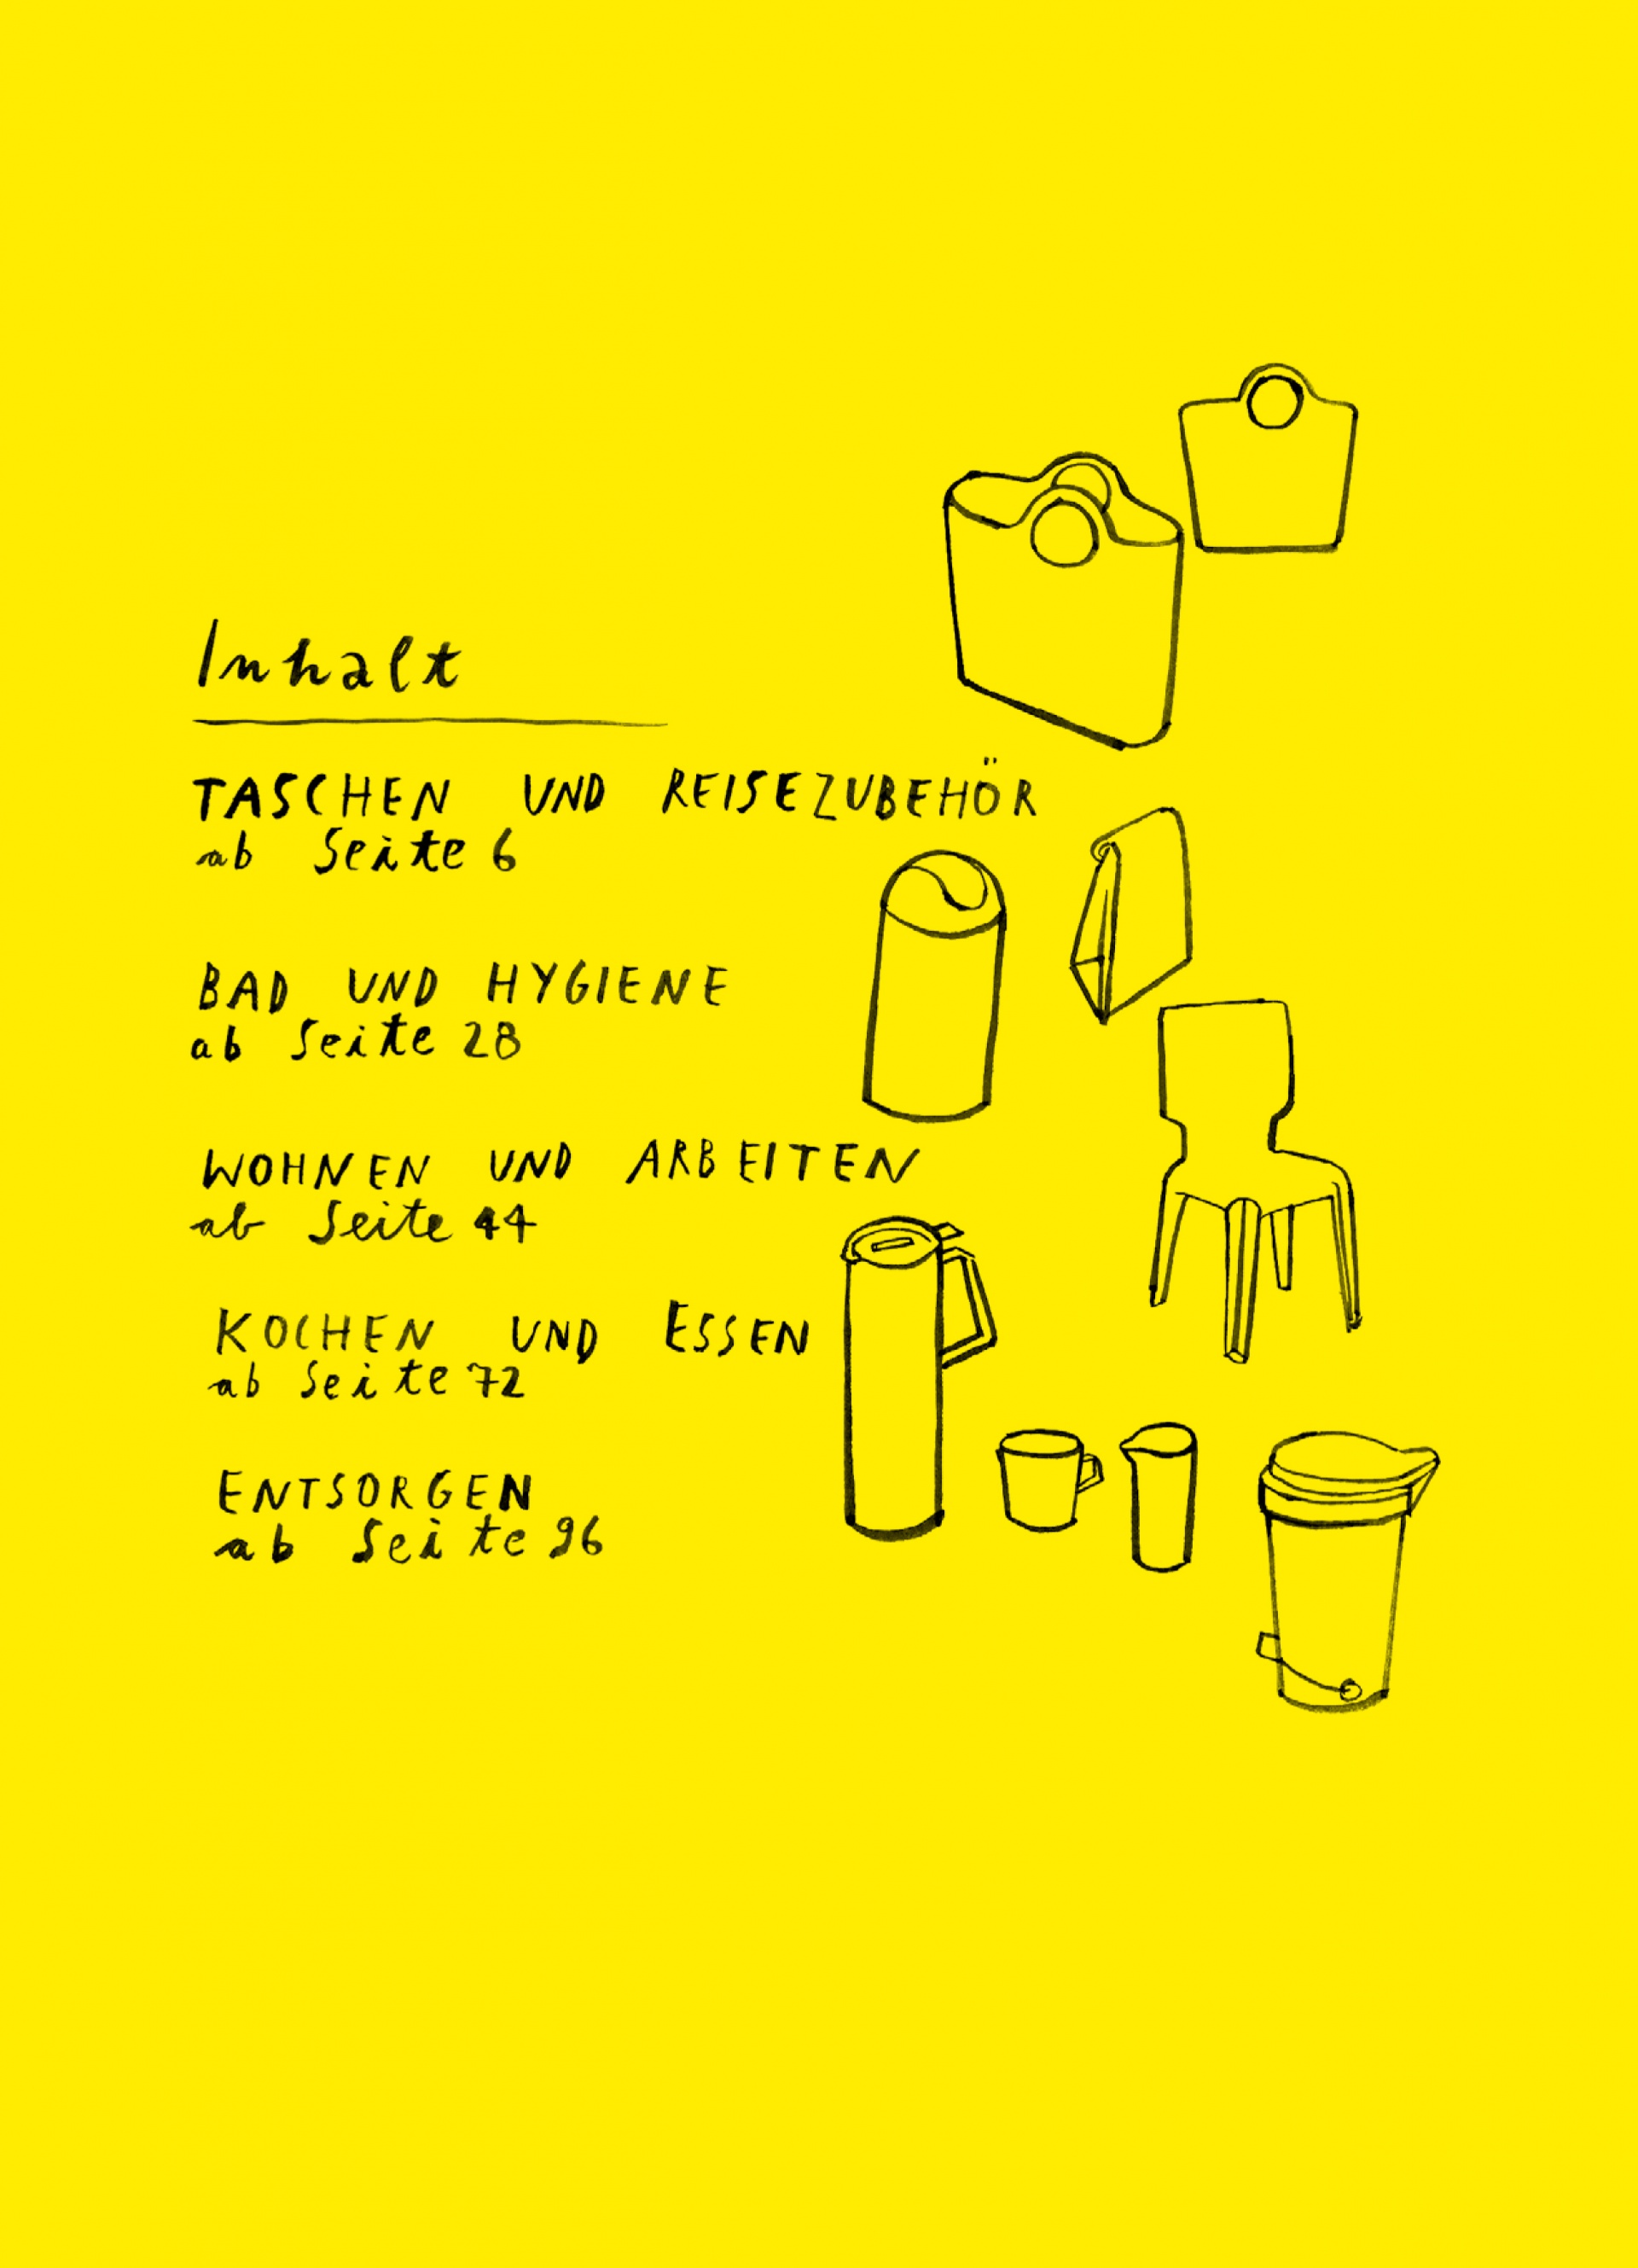 Inhalt
TASCHEN UND REISEZUBEHÖR
ab Seite 6
BAD UND HYGIENE
ab Seite 28
WOHNEN UND ARBEITEN
ab Seite 44
KOCHEN UND ESSEN
ab Seite 72
ENTSORGEN
ab Seite 96